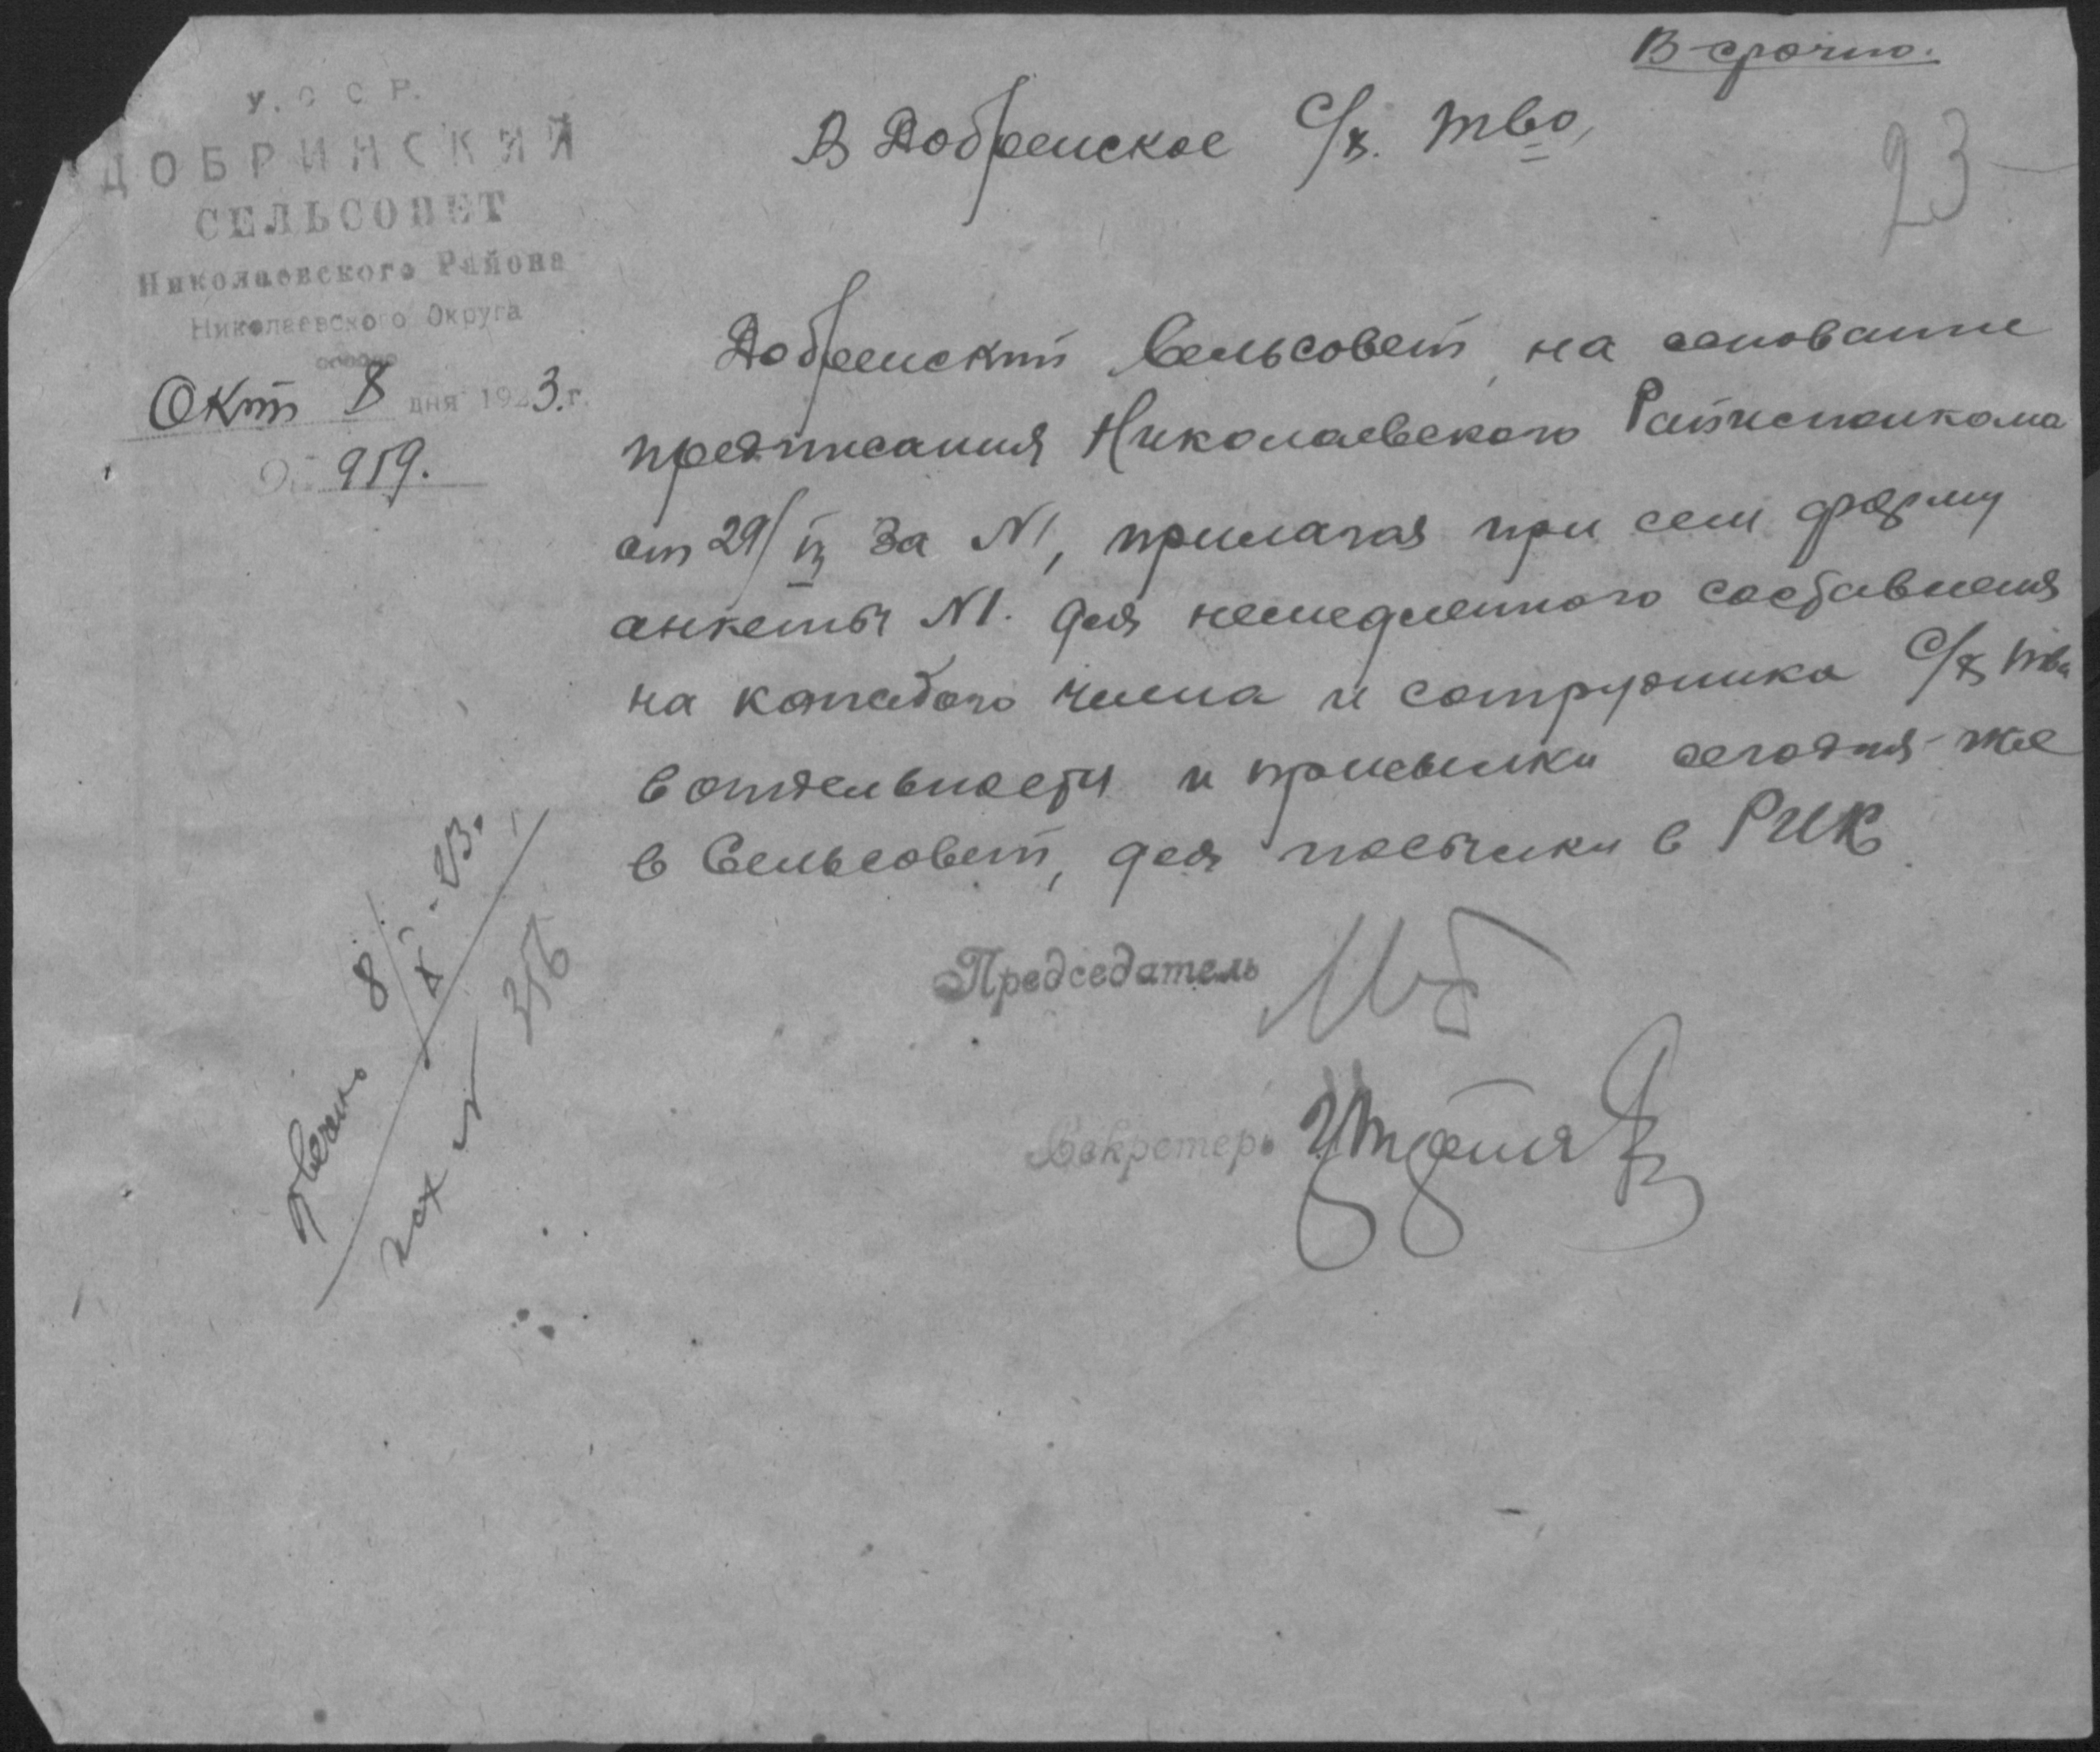 В срочно.
23
У.С.С.Р.
ДОБРИНСКИЙ
СЕЛЬСОВЕТ
Николаевского Района
Николаевского Округа
Окт 8 дня 1923.г.
959.
В Добренское С/х. тво,
Добренский Сельсовет, на основание
предписания Николаевского Райисполкома
от 29/IX за N1, прилагая при сем форму
анкеты N1. для немедленного составления
на каждого члена и сотрудника С/х тва
в отдельности и присылки сегодня-же
в Сельсовет, для посылки в РИК.
Председатель
Секретарь
Отвечено 8/X-23.
исх N 356